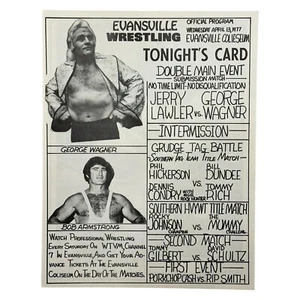 EVANSVILLE
WRESTLING
OFFICIAL PROGRAM
WEDNESDAY APRIL 13, 1977
EVANSVILLE COLISEUM
TONIGHT'S CARD
DOUBLE MAIN EVENT
SUBMISSION MATCH
NO TIME LIMIT-NO DISQUALIFICATION
JERRY GEORGE
LAWLER VS. WAGNER
INTERMISSION
GRUDGE TAG BATTLE
SOUTHERN TAG TEAM TITLE MATCH
PHIL BILL
HICKERSON DUNDEE
DENNIS VS. TOMMY
CONDRY RICH
SOUTHERN HVYWT TITLE MATCH
ROCKY THE
JOHNSON VS. MUMMY
SECOND MATCH
TOMMY DAVID
GILBERT VS SCHULTZ
FIRST EVENT
PORKCHOP CASH VS. RIP SMITH
GEORGE WAGNER
BOB ARMSTRONG
WATCH PROFESSIONAL WRESTLING
EVERY SATURDAY ON WTVW, CHANNEL
7 IN EVANSVILLE, AND GET YOUR ADVANCE
TICKETS AT THE EVANSVILLE
COLISEUM ON THE DAY OF THE MATCHES.